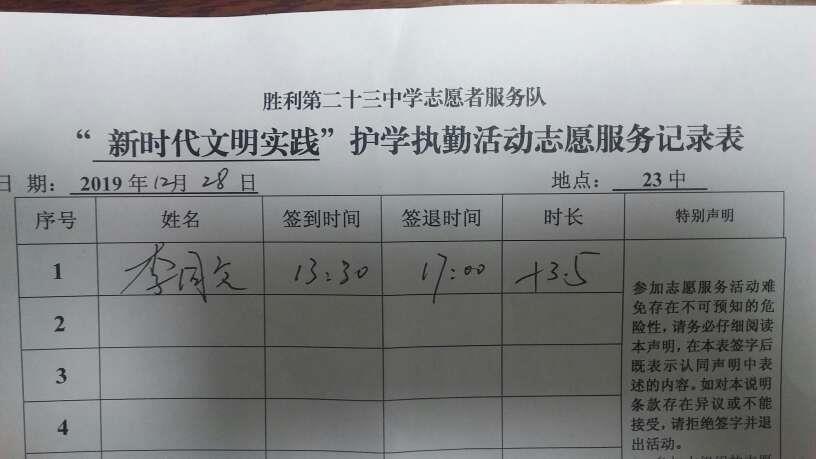 胜利第二十三中学志愿者服务队
“新时代文明实践”护学执勤活动志愿服务记录表
日 期： 2019 年 12月 28 日 地点： 23 中
序号 姓名 签到时间 签退时间 时长 特别声明
1 李同文 13:30 17:00 +3.5
2
3
4
参加志愿服务活动难
免存在不可预知的危
险性，请务必仔细阅读
本声明，在本表签字后
既表示认同声明中表
述的内容。如对本说明
条款存在异议或不能
接受，请拒绝签字并退
出活动。